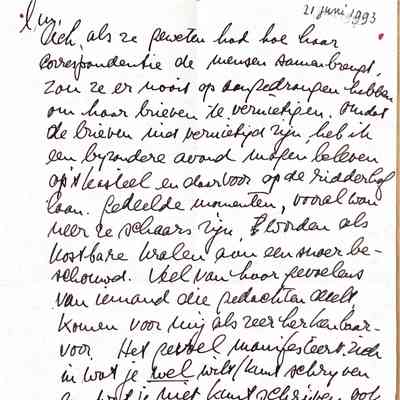 21 juni 1993
Och, als ze geweten had hoe haar
correspondentie de mensen samenbrengt,
zou ze er nooit op aangedrongen hebben
om haar brieven te vernietigen, omdat
de brieven niet vernietigd zijn, heb ik
een byzondere avond mogen beleven
op 't kasteel en daarvoor op de ridderhof
laan. Gedeelde momenten, vooral wan
neer ze schaars zijn, worden als
kostbare kralen aan een snoer be-
schouwd. Veel van haar gevoelens
van iemand die gedachten deelt
komen voor mij als zeer herkenbaar
voor. Het gevoel manifesteert zich
in wat je wel wilt/kunt schrijven
wat je niet kunt schrijven ook